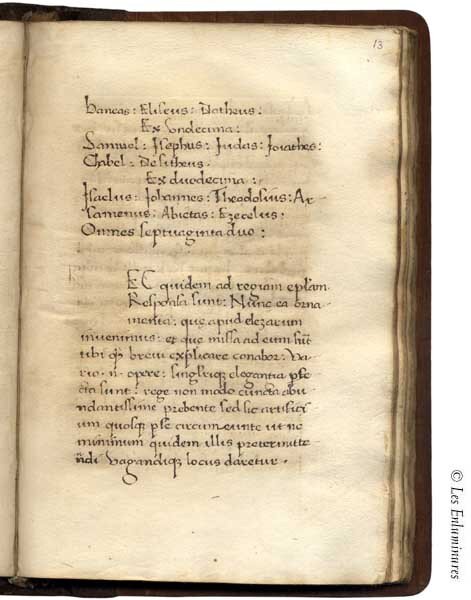 13
baneas: Eliseus: Datheus:
Ex undecima:
Samuol: Isephus: Iudas: Ionathes:
Chabel: Desitheus.
Ex duodecima:
Isaelus: Iohannes: Theodosius: Ar
samenus: Abietas: Ezecelus:
Omnes septuaginta duo:
EC quidem ad regiam epłam
Responsa sunt: Nunc ea orna
menta: que apud elezarum
invenimus: et que missa ad eum sūt
tibi brevi explicare conabor: Va
rio .n. opere: singuleq; elegantia pfe
cta sunt: rege non modo cuncta abu
ndantissime prebente sed sic artifici
um quosq; pse circumeunte ut ne
minimum quidem illis pretermitte
ndi vagandiq; locus daretur.
© Les Enluminures